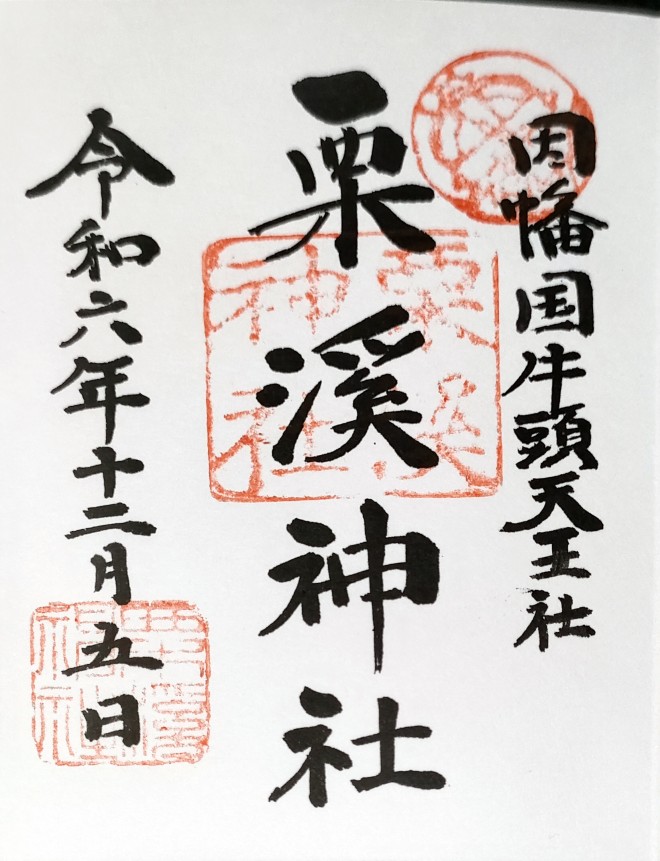 因幡国牛頭天王社
栗溪神社
令和六年十二月五日
栗溪神社